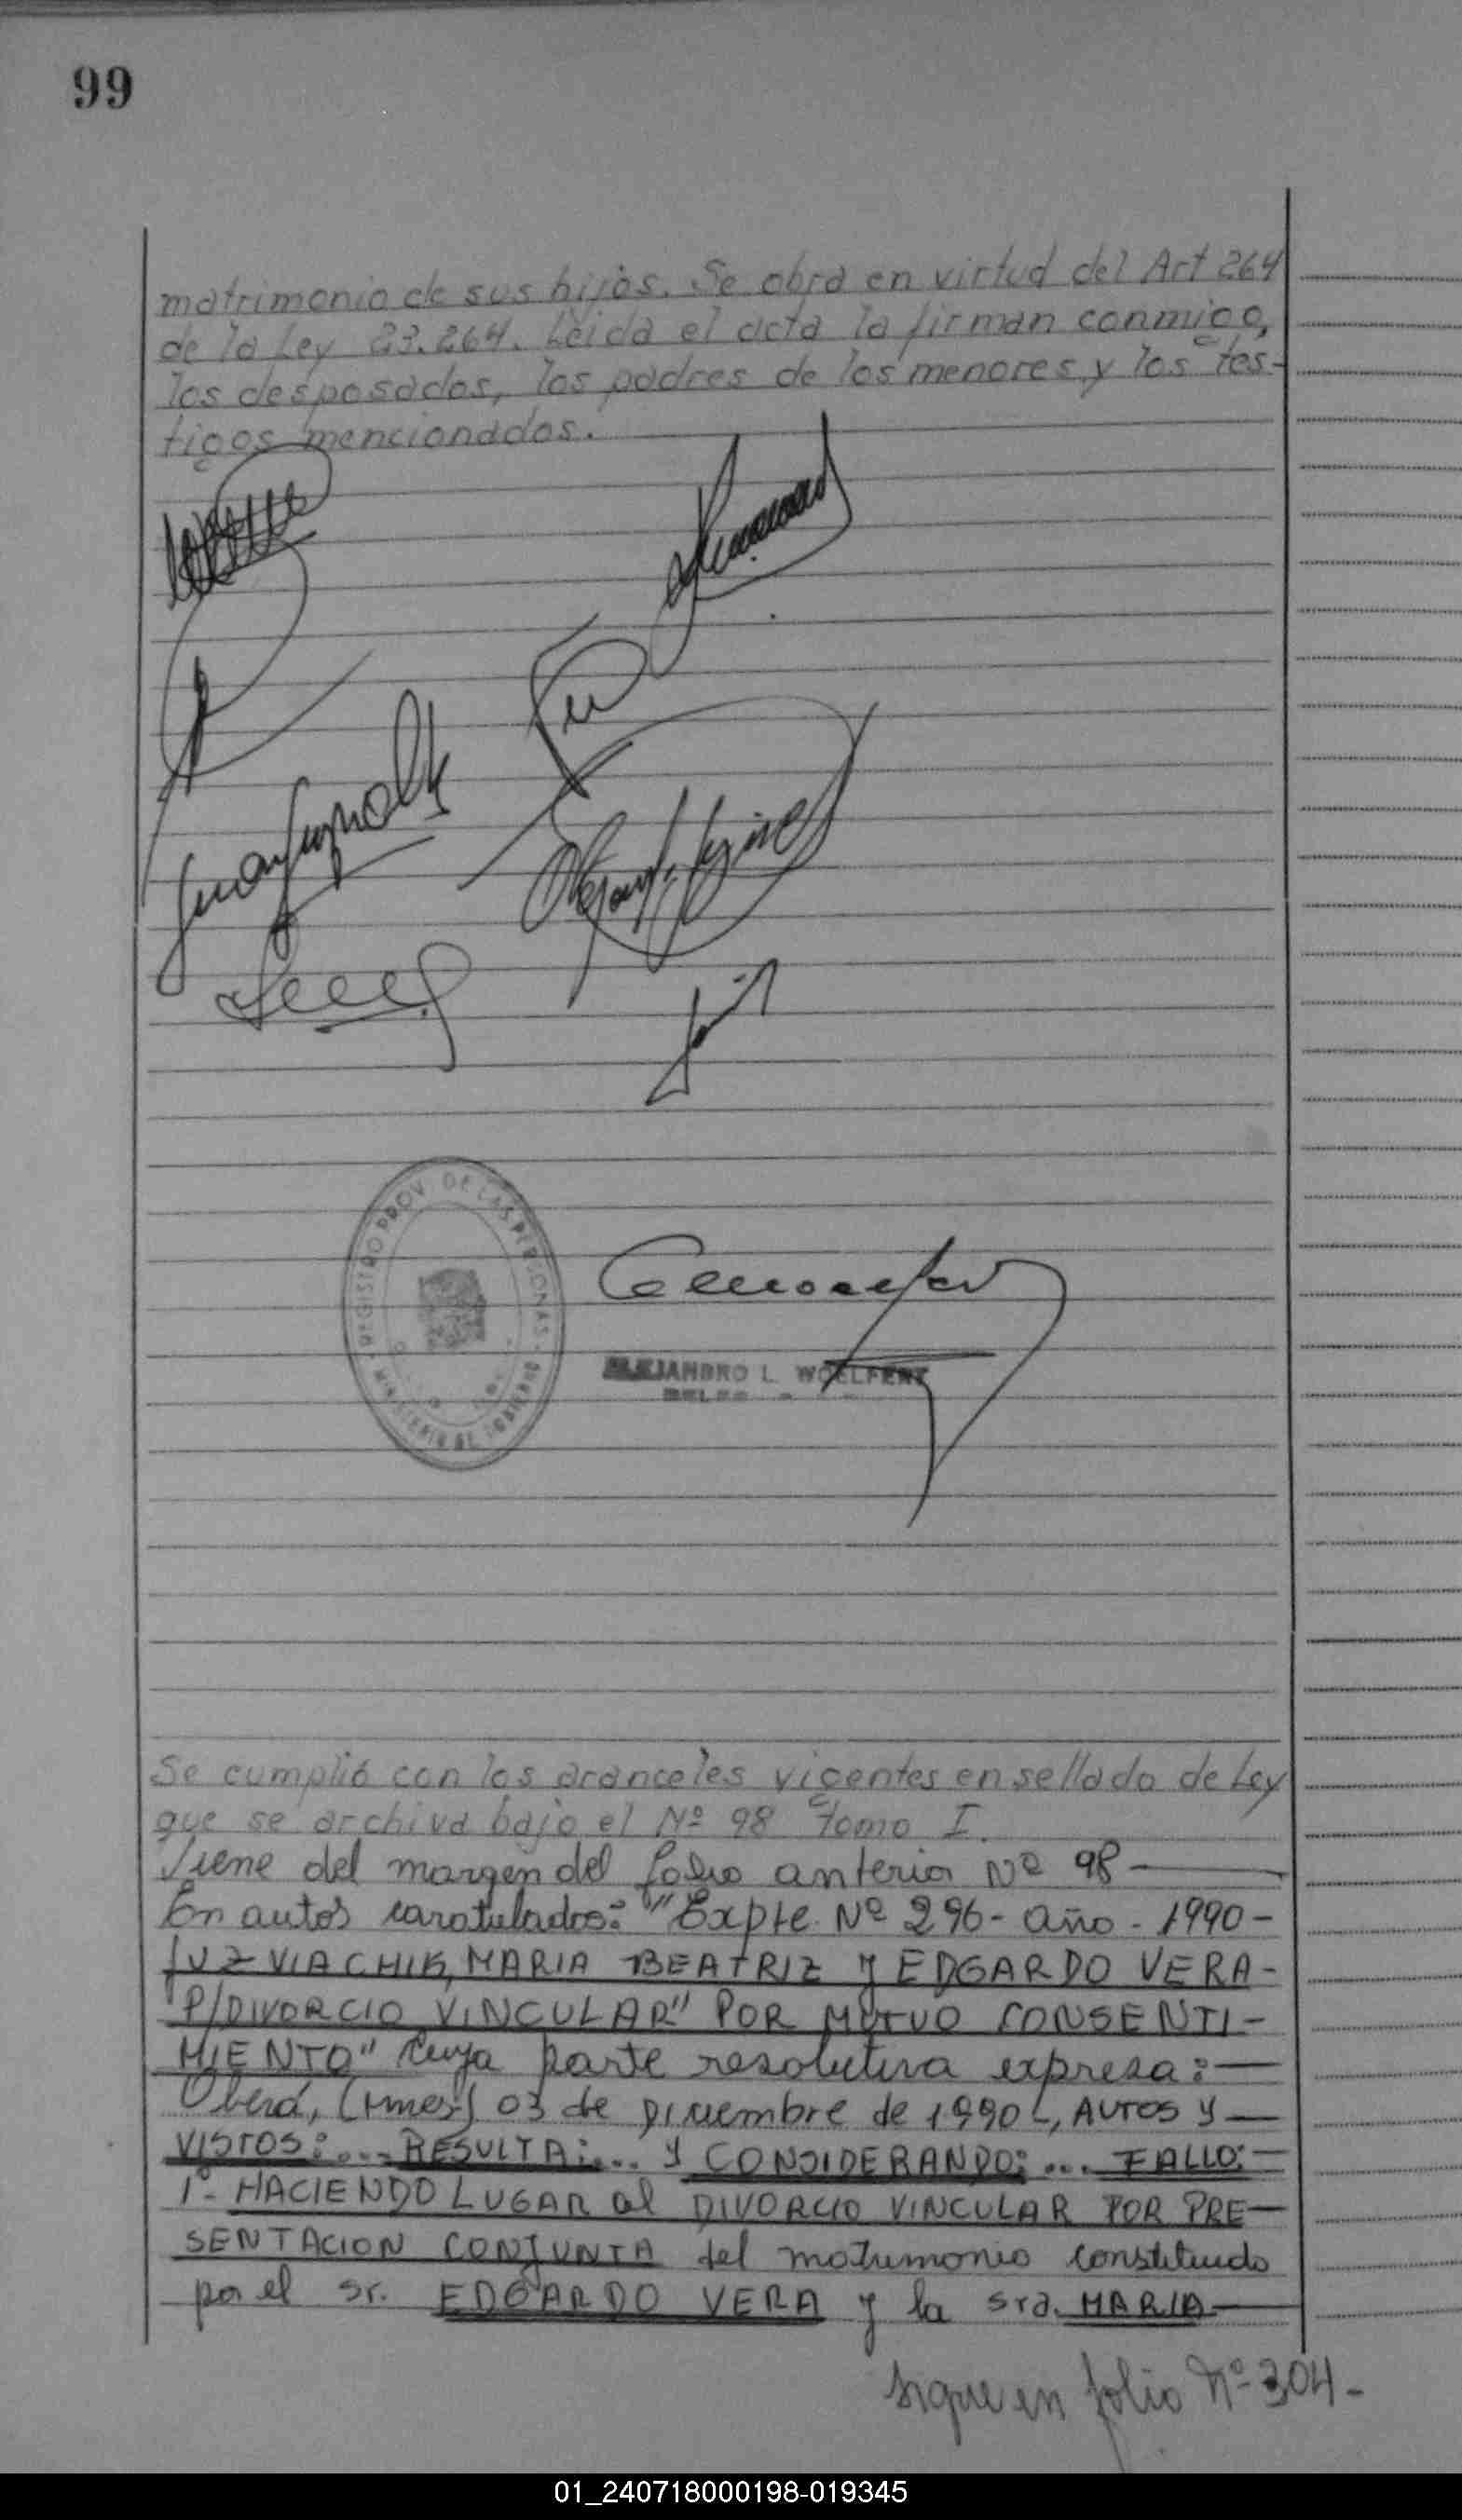 99
matrimonio de sus hijos. Se obra en virtud del Art 264
de la Ley 23.264. Leida el acta la firman conmigo,
los desposados, los padres de los menores y los tes-
tigos mencionados.
REGISTRO PROV. DE LAS PERSONAS
MINISTERIO DE GOBIERNO
ALEJANDRO L. WOELFERT
Se cumplió con los aranceles vigentes en sellado de Ley
que se archiva bajo el Nº 98 Tomo I.
Viene del margen del folio anterior Nº 98
En autos caratulados: "Expte. Nº 296- año - 1990-
MARIA BEATRIZ y EDGARDO VERA-
P/DIVORCIO VINCULAR" POR MUTUO CONSENTI-
MIENTO" cuya parte resolutiva expresa:
Oberá, 03 de Diciembre de 1990, AUTOS y
VISTOS:... RESULTA:... y CONSIDERANDO:... FALLO:
1º- HACIENDO LUGAR al DIVORCIO VINCULAR POR PRE
SENTACION CONJUNTA del matrimonio constituido
por el sr. EDGARDO VERA y la sra. MARIA
sigue en folio Nº 304-
01_240718000198-019345